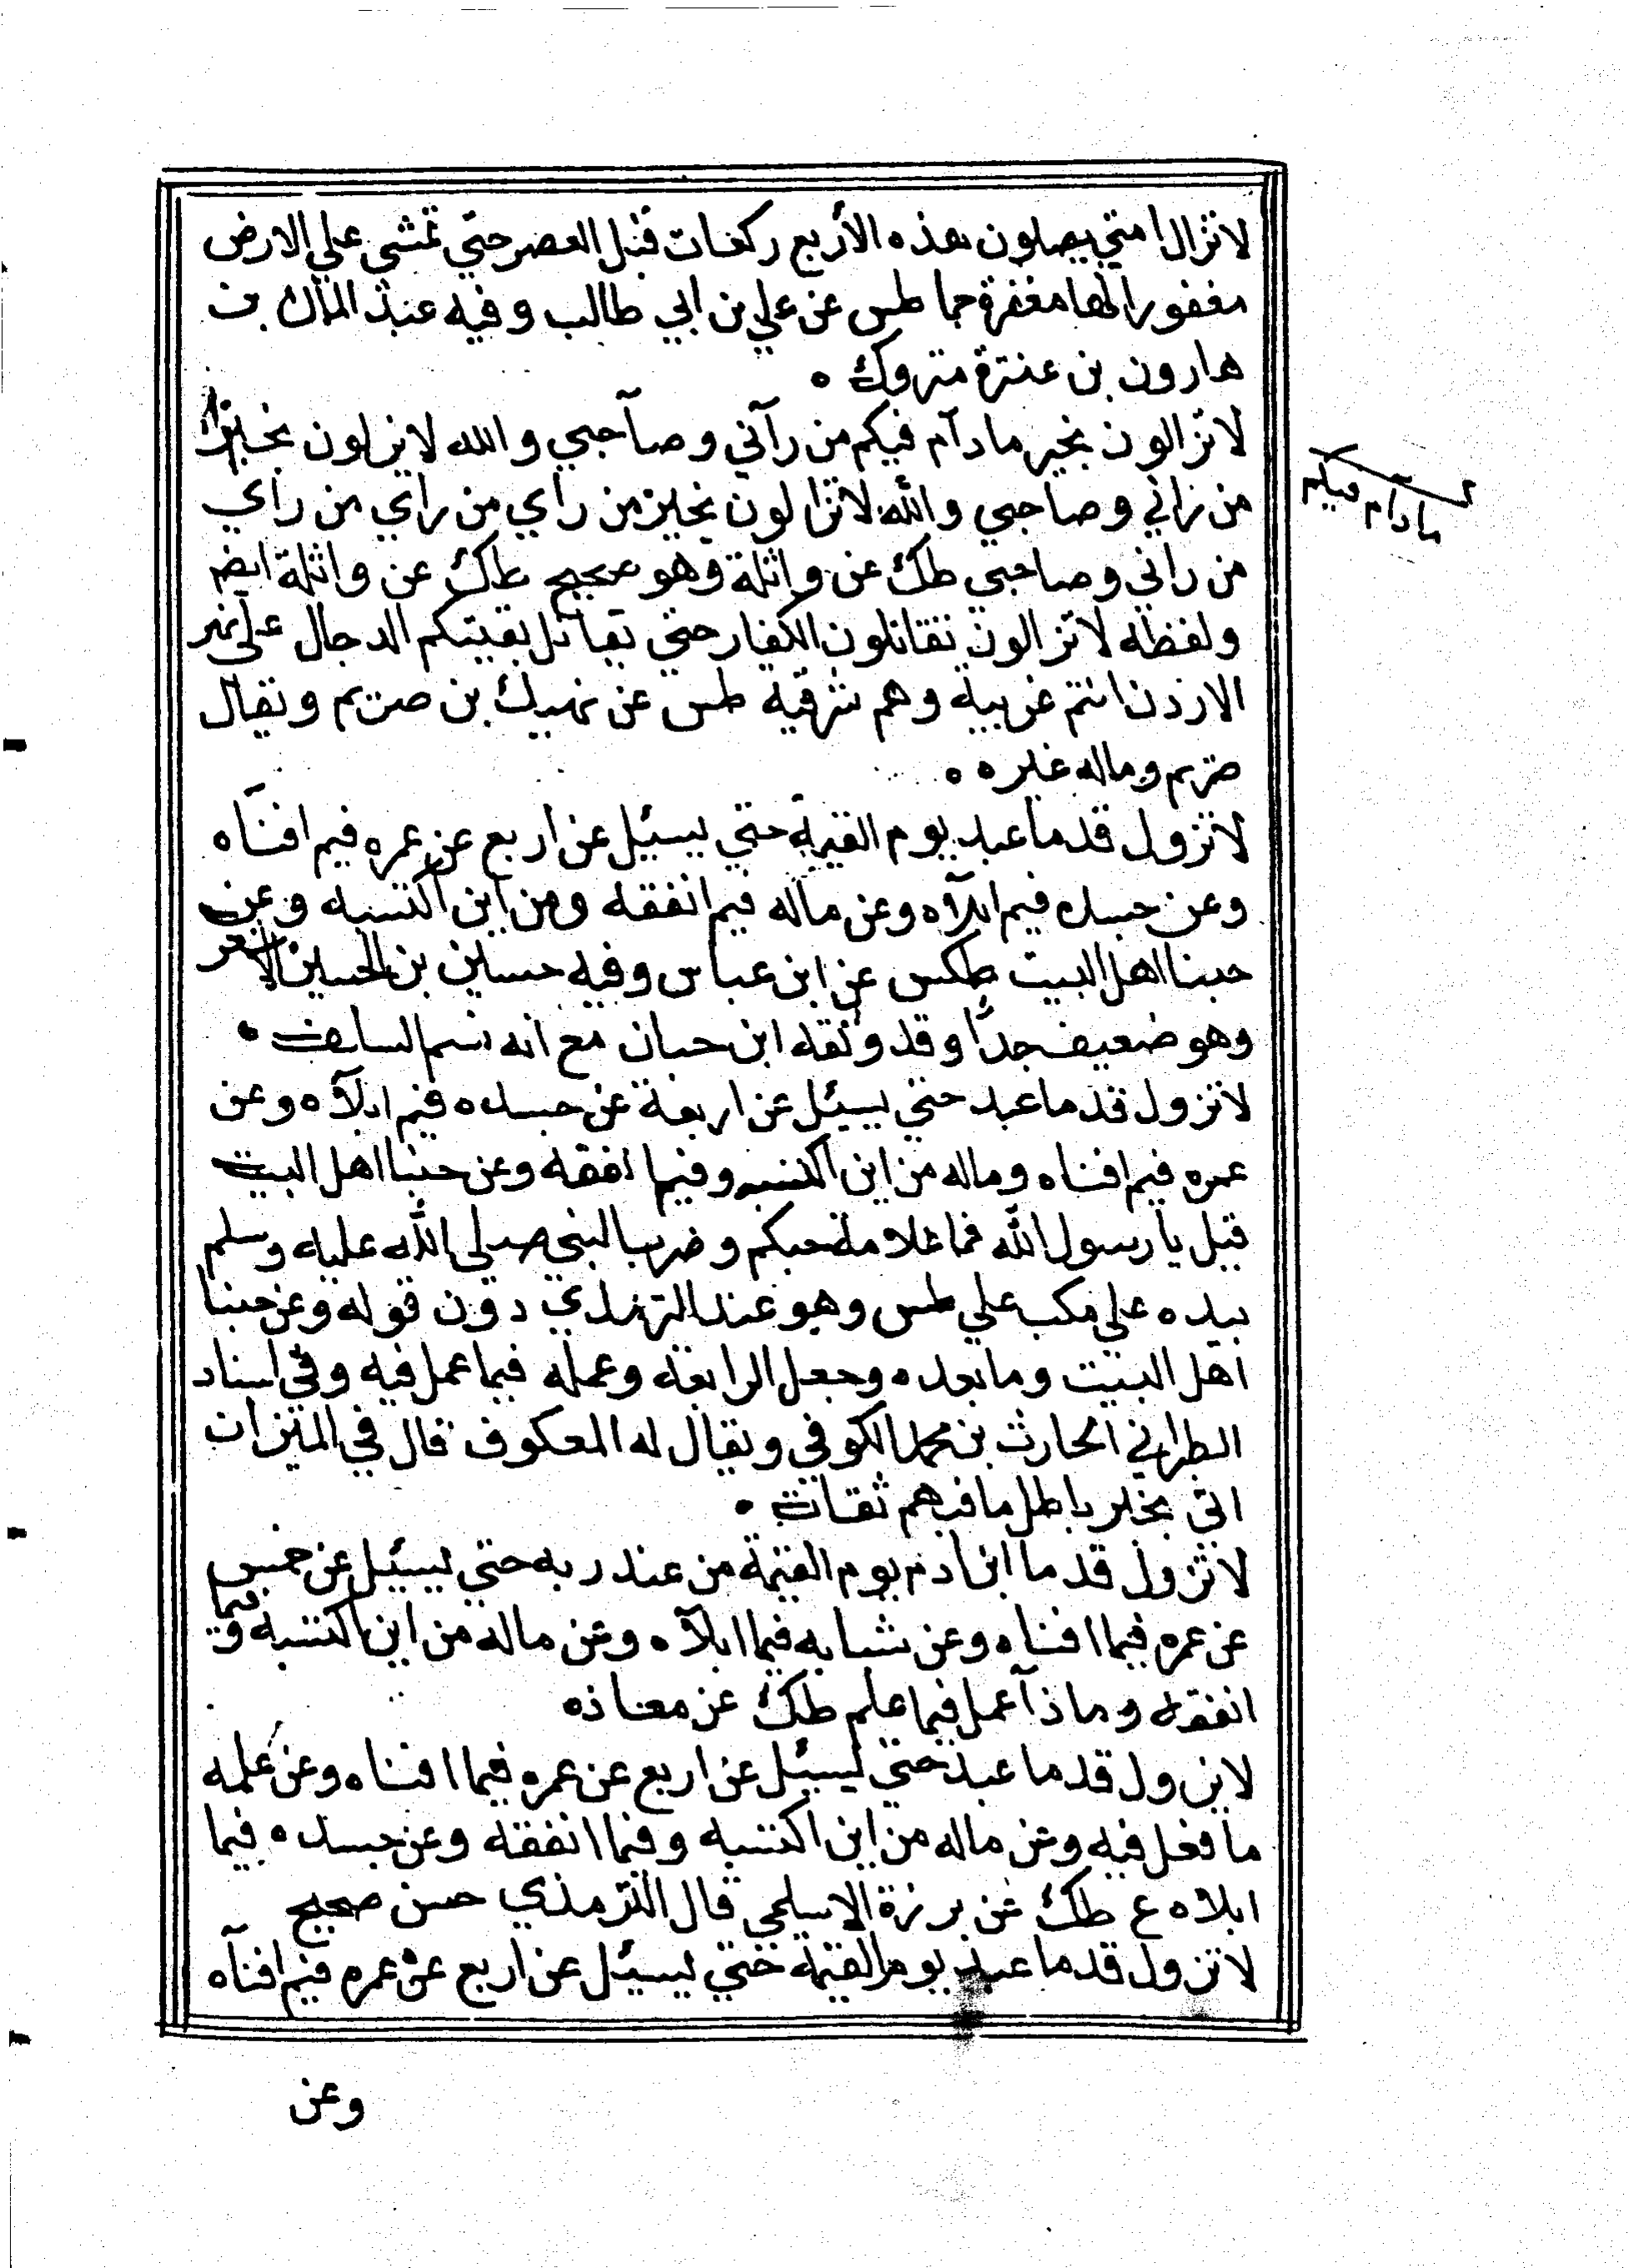 لاتزال امتي يصلون هذه الأربع ركعات قبل العصر حتي تمشي علي الارض
مغفورا لها مغفرة حما طس عن علي بن ابي طالب وفيه عبد الملك بن
هارون بن عنترة متروك ه
لاتزالون بخير مادآم فيكم من رآني وصآحبي والله لايزلون بخير
مادآم فيكم
من راني وصاحبي والله لاتزالون بخير من راي من راي من راي
من راني وصاحبي طك عن واثلة وهو صحيح طك عن واثلة ايضم
ولفظه لاتزالون تقاتلون الكفار حتي تقاتل بقيتكم الدجال علي نهر
الاردن انتم غربيه وهم شرقيه طس عن نهيك بن صريم ويقال
ضريم وماله غيره ه
لاتزول قدما عبد يوم القيمة حتي يسئل عن اربع عن عمره فيم افنآه
وعن جسده فيم ابلآه وعن ماله فيم انفقه ومن اين اكتسبه وعن
حبنا اهل البيت طكس عن ابن عباس وفيه حسين بن الحسين الاشقر
وهو ضعيف جدًّا وقد وثقه ابن حبان مع انه شتم السلف ه
لاتزول قدما عبد حتي يسئل عن اربعة عن جسده فيم ابلآه وعن
عمره فيم افناه وماله من اين اكتسبه وفيما انفقه وعن حبنا اهل البيت
قيل يا رسول الله فما علامة حبكم وضرب النبي صلي الله عليه وسلم
بيده علي مكب علي طس وهو عند الترمذي دون قوله وعن حبنا
اهل البيت وما بعده وجعل الرابعة وعمله فيما عمل فيه وفي اسناد
الطبراني الحارث بن محمد الكوفي ويقال له المعكوف قال في الميزان
اتي بخبر باطل مافيهم ثقات ه
لاتزول قدما ابن ادم يوم القيمة من عند ربه حتي يسئل عن خمس
عن عمره فيما افناه وعن شبابه فيما ابلآه وعن ماله من اين اكتسبه وفيما
انفقه وماذآ عمل فيما علم طك عن معاذه
لايزول قدما عبد حتي يسئل عن اربع عن عمره فيما افناه وعن علمه
ما فعل فيه وعن ماله من اين اكتسبه وفيما انفقه وعن جسده فيما
ابلاه ع طك عن برزة الاسلمي قال الترمذي حسن صحيح
لاتزول قدما عبد يوم القيمة حتي يسئل عن اربع عن عمره فيم افنآه
وعن